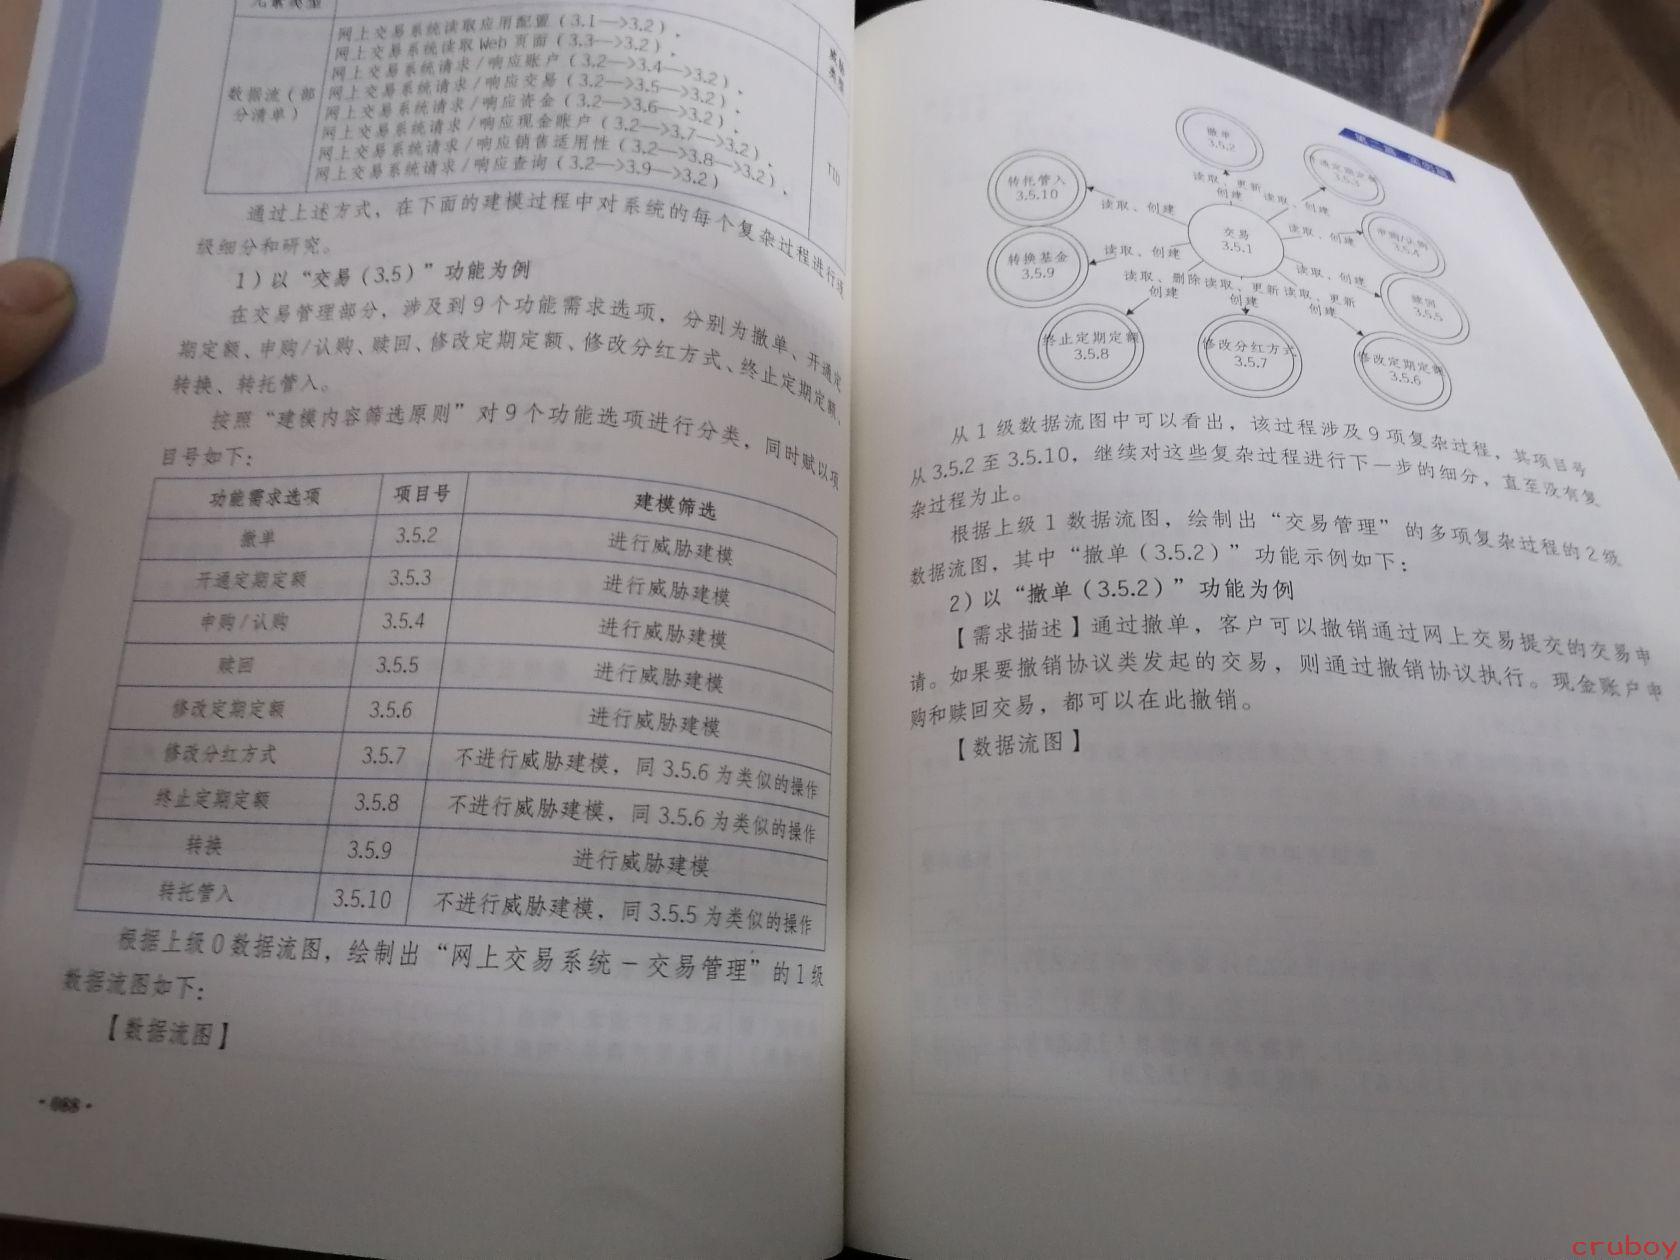 元素类型
数据流（部
分清单）
网上交易系统读取应用配置（3.1—>3.2），
网上交易系统读取Web页面（3.3—>3.2），
网上交易系统请求/响应账户（3.2—>3.4—>3.2），
网上交易系统请求/响应交易（3.2—>3.5—>3.2），
网上交易系统请求/响应资金（3.2—>3.6—>3.2），
网上交易系统请求/响应现金账户（3.2—>3.7—>3.2），
网上交易系统请求/响应销售适用性（3.2—>3.8—>3.2），
网上交易系统请求/响应查询（3.2—>3.9—>3.2）
通过上述方式，在下面的建模过程中对系统的每个复杂过程进行逐
级细分和研究。
1）以“交易（3.5）”功能为例
在交易管理部分，涉及到9个功能需求选项，分别为撤单、开通定
期定额、申购/认购、赎回、修改定期定额、修改分红方式、终止定期定额、
转换、转托管入。
按照“建模内容筛选原则”对9个功能选项进行分类，同时赋以项
目号如下：
功能需求选项 项目号 建模筛选
撤单 3.5.2 进行威胁建模
开通定期定额 3.5.3 进行威胁建模
申购/认购 3.5.4 进行威胁建模
赎回 3.5.5 进行威胁建模
修改定期定额 3.5.6 进行威胁建模
修改分红方式 3.5.7 不进行威胁建模，同3.5.6为类似的操作
终止定期定额 3.5.8 不进行威胁建模，同3.5.6为类似的操作
转换 3.5.9 进行威胁建模
转托管入 3.5.10 不进行威胁建模，同3.5.5为类似的操作
根据上级0数据流图，绘制出“网上交易系统－交易管理”的1级
数据流图如下：
【数据流图】
撤单
3.5.2
开通定期定额
3.5.3
转托管入
3.5.10
读取、更新
创建
读取、
创建
读取、创建
交易
3.5.1
读取、创建
申购/认购
3.5.4
转换基金
3.5.9
读取、创建
读取、创建
赎回
3.5.5
读取、删除
创建
读取、更新
创建
读取、更新
创建
终止定期定额
3.5.8
修改分红方式
3.5.7
修改定期定额
3.5.6
从1级数据流图中可以看出，该过程涉及9项复杂过程，其项目号
从3.5.2至3.5.10，继续对这些复杂过程进行下一步的细分，直至没有复
杂过程为止。
根据上级1数据流图，绘制出“交易管理”的多项复杂过程的2级
数据流图，其中“撤单（3.5.2）”功能示例如下：
2）以“撤单（3.5.2）”功能为例
【需求描述】通过撤单，客户可以撤销通过网上交易提交的交易申
请。如果要撤销协议类发起的交易，则通过撤销协议执行。现金账户申
购和赎回交易，都可以在此撤销。
【数据流图】
cruboy